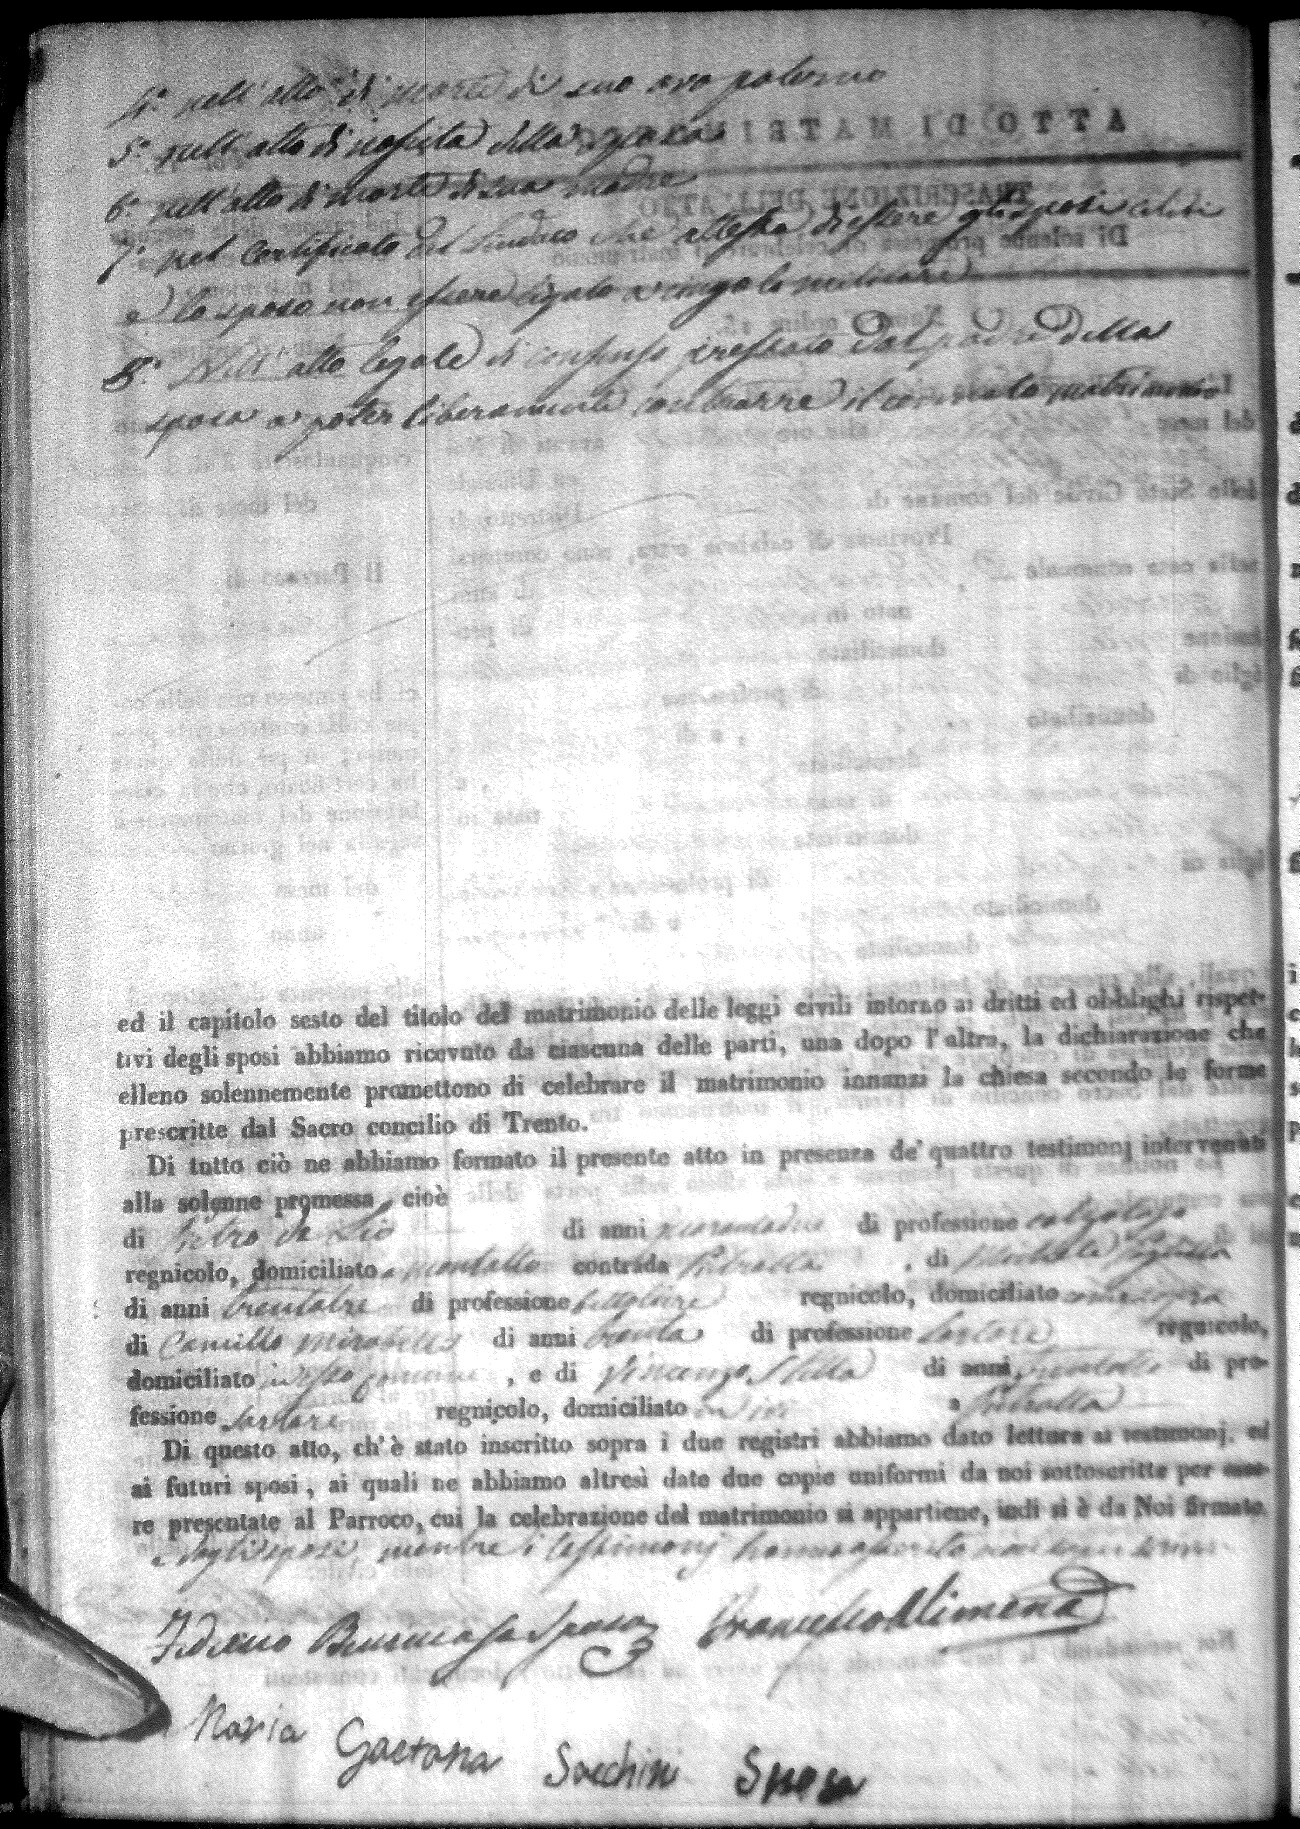 4.° nell'atto di morte di suo avo paterno
5.° nell'atto di nascita della sposa
6.° nell'atto di morte di sua madre
7.° nel certificato del Sindaco che attesta di essere gli sposi celibi
e lo sposo non essere legato a vincolo militare
8.° Nell'atto legale di consenso prestato dal padre della
sposa a poter liberamente contrarre il matrimonio
ed il capitolo sesto del titolo del matrimonio delle leggi civili intorno ai dritti ed obblighi rispet-
tivi degli sposi abbiamo ricevuto da ciascuna delle parti, una dopo l'altra, la dichiarazione che
elleno solennemente promettono di celebrare il matrimonio innanzi la chiesa secondo le forme
prescritte dal Sacro concilio di Trento.
Di tutto ciò ne abbiamo formato il presente atto in presenza de' quattro testimonj intervenuti
alla solenne promessa, cioè
di Pietro de Lio di anni quarantadue di professione calzolajo
regnicolo, domiciliato a Montalto contrada Pietralta, di Michele
di anni trentatre di professione regnicolo, domiciliato come sopra
di Camillo Mirabelli di anni trenta di professione Sartore regnicolo,
domiciliato in esso comune, e di Vincenzo Stella di anni di pro-
fessione Sartore regnicolo, domiciliato in ivi a Pietralta
Di questo atto, ch'è stato inscritto sopra i due registri abbiamo dato lettura ai testimonj, ed
ai futuri sposi, ai quali ne abbiamo altresì date due copie uniformi da noi sottoscritte per esse-
re presentate al Parroco, cui la celebrazione del matrimonio si appartiene, indi si è da Noi firmato.
e dagli sposi, mentre i testimonj hanno asserito non saper scrivere
Federico Sposo Francesco Alimena
Maria Gaetana Sacchini Sposa